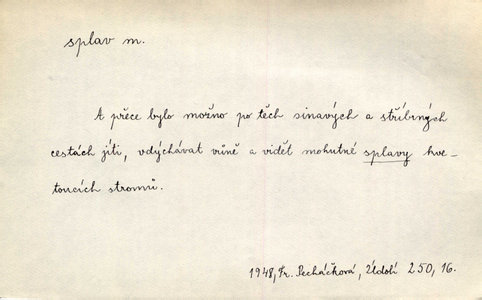 splav m.
A přece bylo možno po těch sinavých a stříbrných
cestách jíti, vdýchávat vůně a vidět mohutné splavy kve-
toucích stromů.
1948, Fr. Pecháčková, Údolí 250, 16.